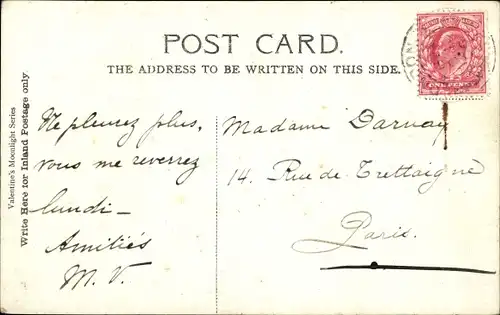 POST CARD.
THE ADDRESS TO BE WRITTEN ON THIS SIDE.
Valentine's Moonlight Series
Write Here for Inland Postage only
ONE PENNY
Ne pleurez plus,
vous me reverrez
lundi -
Amitiés
M. V.
Madame Darnay
14. Rue de Trettaigne
Paris.